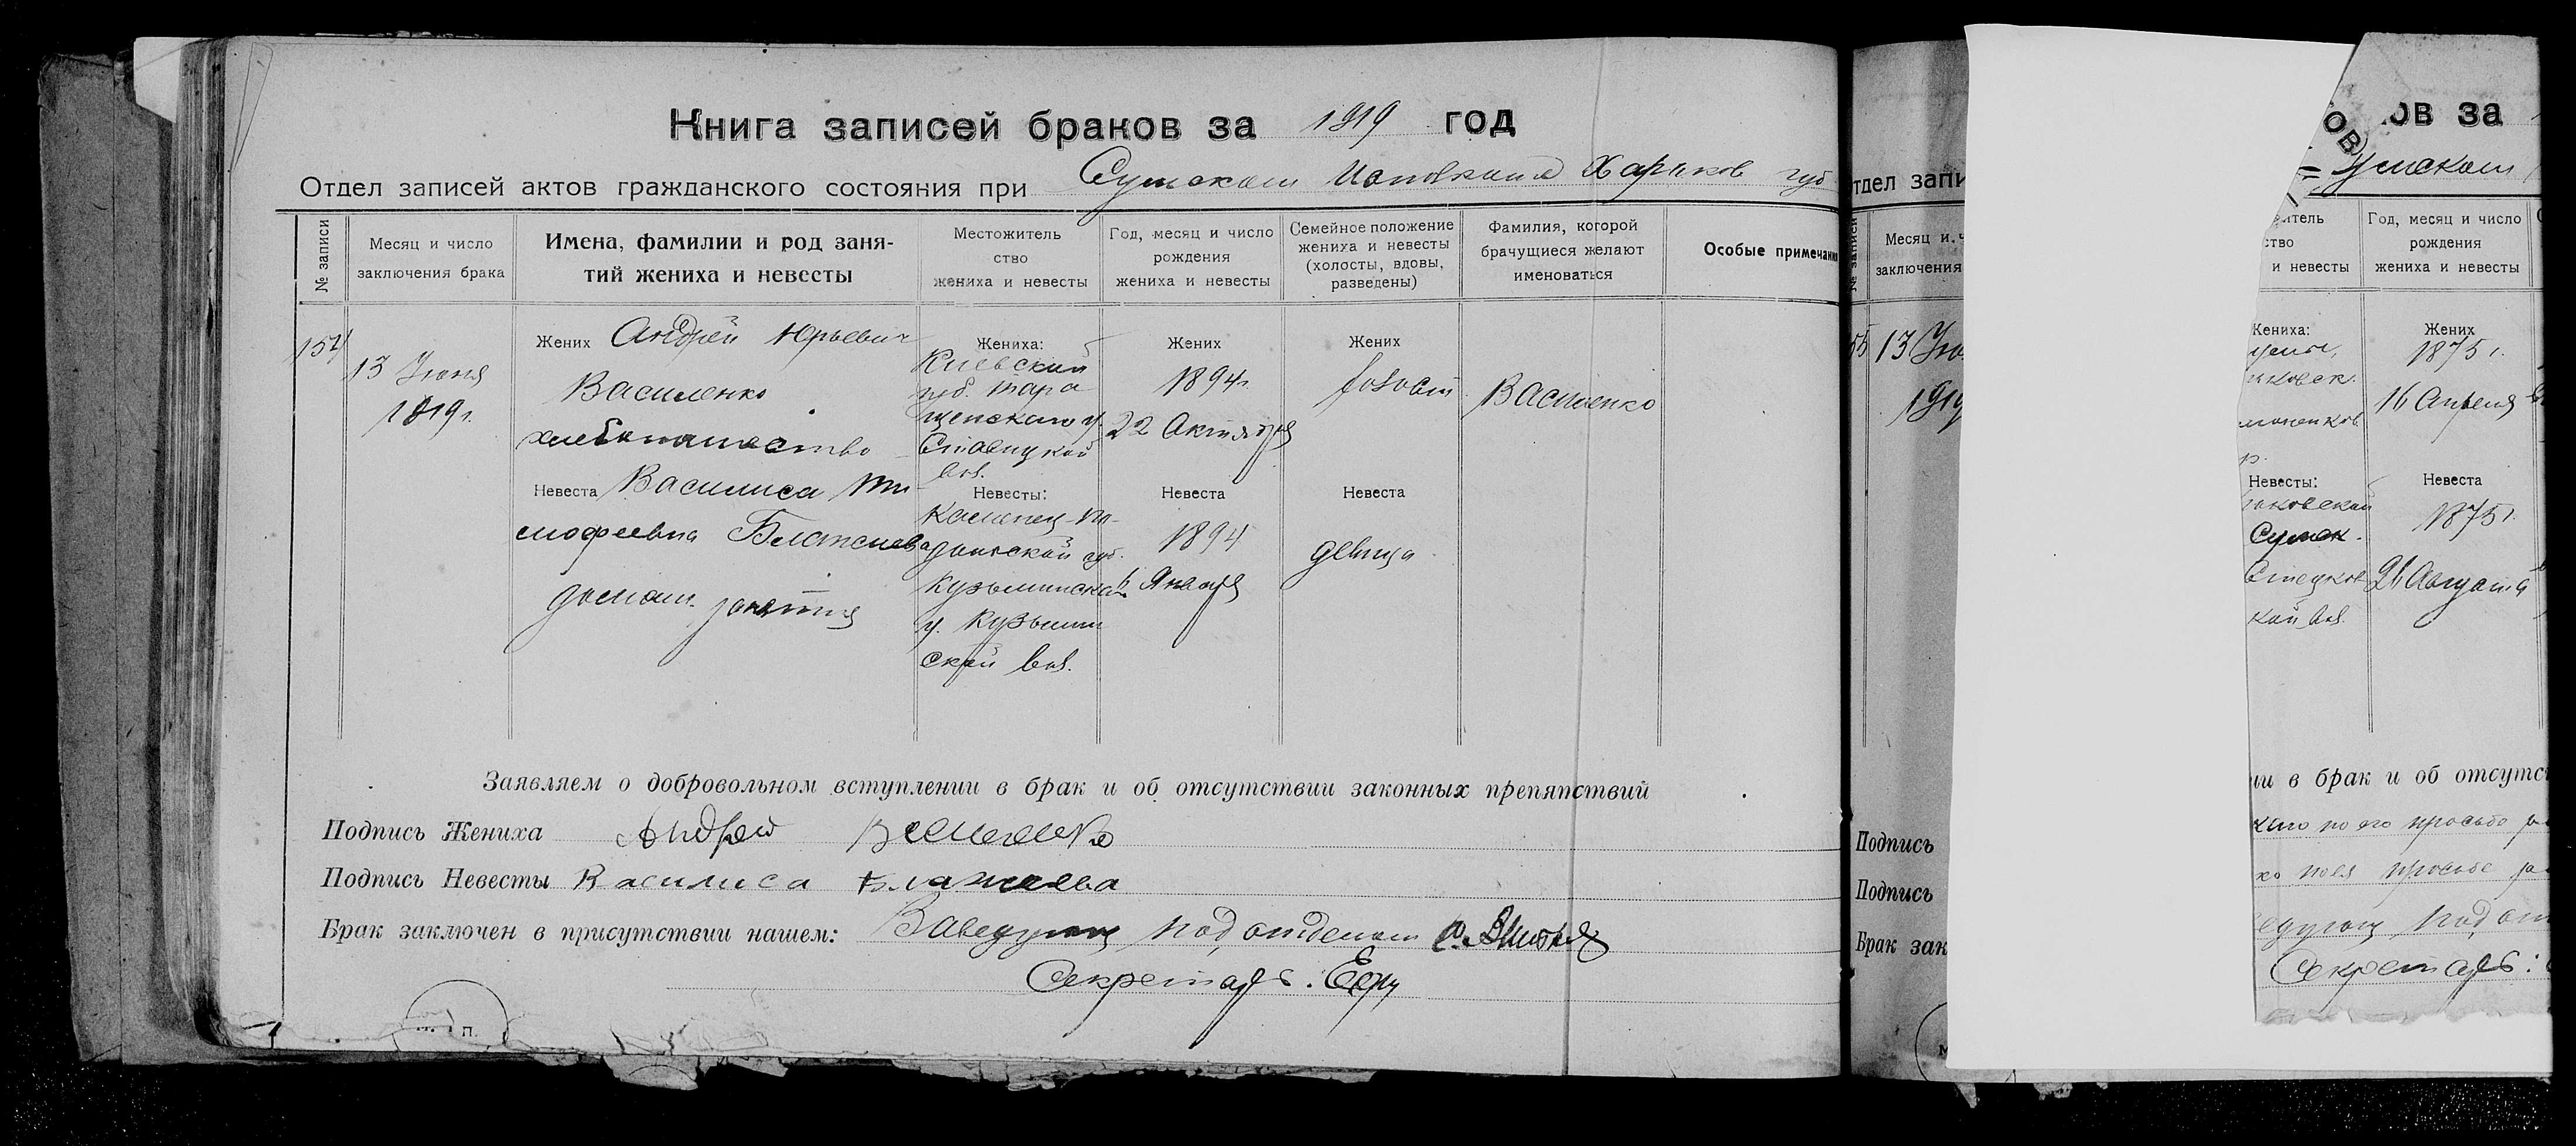 Книга записей браков за 1919 год
Отдел записей актов гражданского состояния при Сумском Исполкоме Харьков губ
№ записи
Месяц и число
заключения брака
Имена, фамилии и род заня-
тий жениха и невесты
Местожитель
ство
жениха и невесты
Год, месяц и число
рождения
жениха и невесты
Семейное положение
жениха и невесты
(холосты, вдовы,
разведены)
Фамилия, которой
брачущиеся желают
именоваться
Особые примечани
154
13 Июня
1919г.
Жених Андрей Юрьевич
Василенко
хлебопашество
Невеста Василиса Ти-
мофеевна Блажиева
домаш. занятия
Жениха:
Киевской
губ. Тара
щенскаго у.
Ставицкой
вол.
Невесты:
Каменец-По-
дольской губ.
Кузьминска
у. Кузьмин
ской вол.
Жених
1894г.
22 Октября
Невеста
1894
6 Января
Жених
холост
Невеста
девица
Василенко
Заявляем о добровольном вступлении в брак и об отсутствии законных препятствий
Подпись Жениха Андрей Василенко
Подпись Невесты Василиса Блажиева
Брак заключен в присутствии нашем: Заведующ подотделом
Секретарь:
м. п.
ов за
тдел запи
Сумском
№ записи
Месяц и ч
заключения
итель
ство
и невесты
Год, месяц и число
рождения
жениха и невесты
55
13 Ию
1919
Жениха:
Жених
1875г.
16 Апреля
Невесты:
Сумск.
Стецков
кой вол.
Невеста
1875г.
26 Августа
ии в брак и об отсутс
Подпись
по его просьбе
Подпись
просьбе
Брак зак
едующ подот
Секретарь: